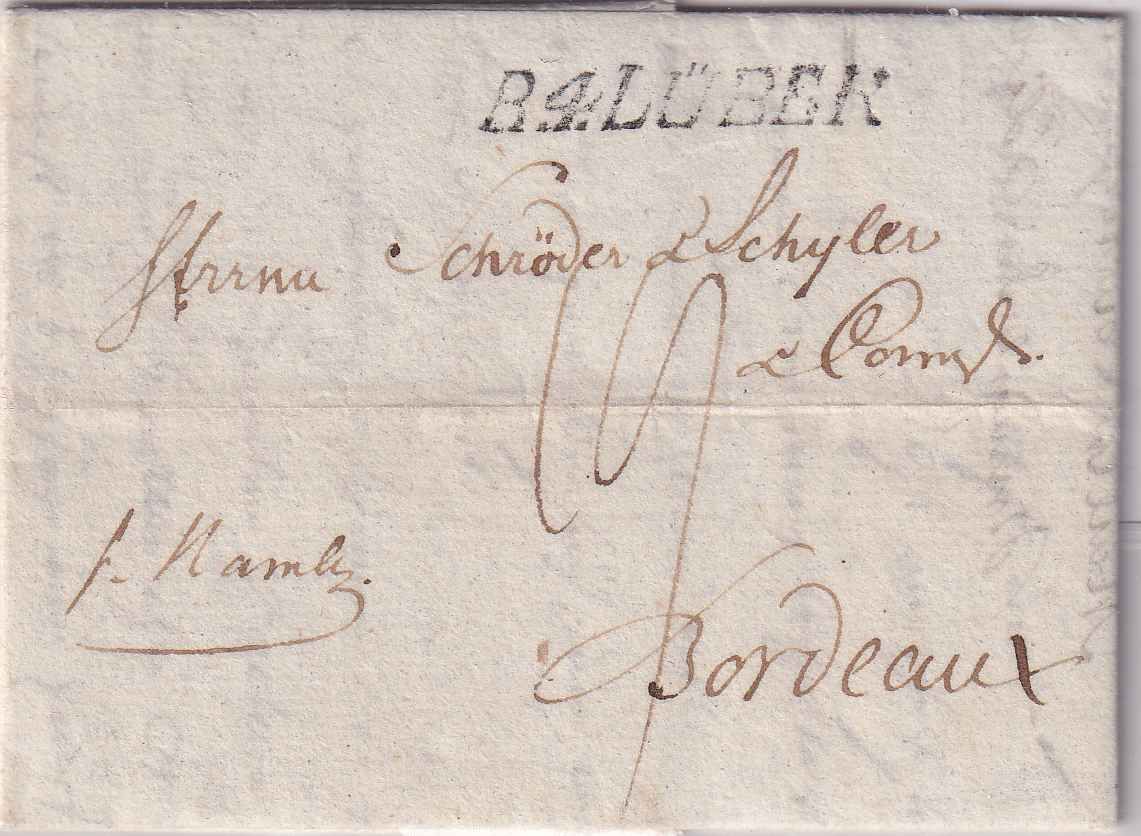 R.4.LÜBEK
Herrn Schröder & Schyler
& Comp.
p. Hambg.
Bordeaux